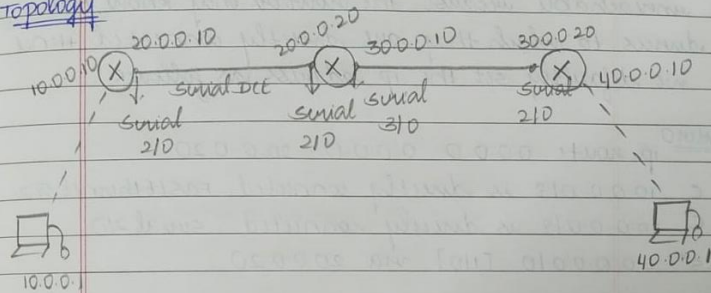 Topology
20.0.0.10
20.0.0.20
30.0.0.10
30.0.0.20
10.0.0.10
X
X
X
40.0.0.10
Serial DCE
Serial
2/0
Serial
2/0
Serial
3/0
Serial
2/0
10.0.0.1
40.0.0.1